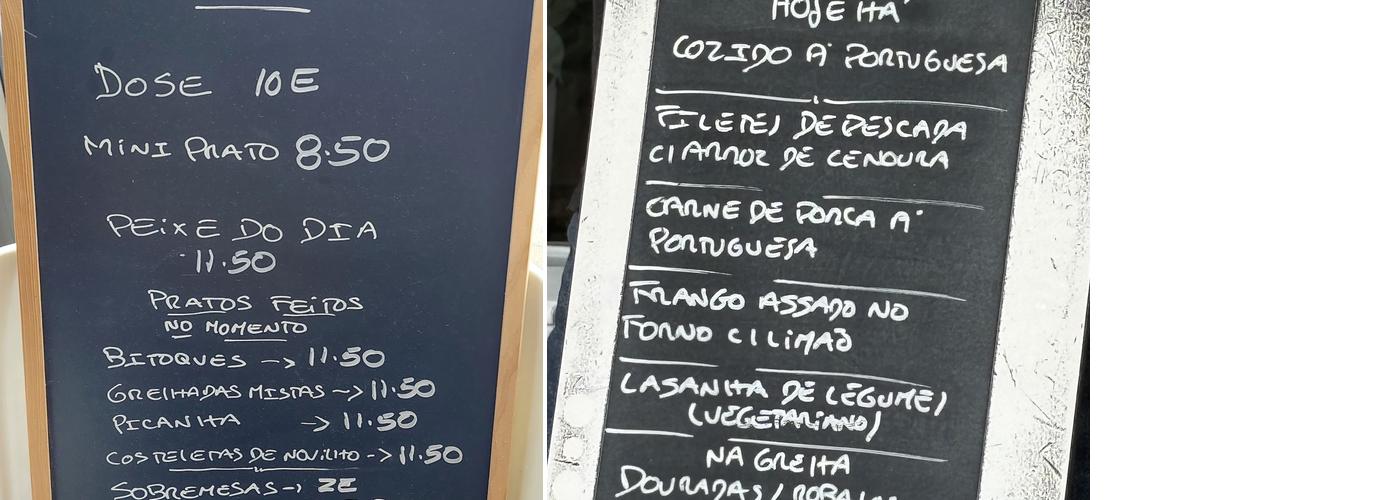 DOSE 10E
MINI PRATO 8.50
PEIXE DO DIA
11.50
PRATOS FEITOS
NO MOMENTO
BITOQUES -> 11.50
GRELHADAS MISTAS -> 11.50
PICANHA -> 11.50
COSTELETAS DE NOVILHO -> 11.50
SOBREMESAS -> 2E
HOJE HÁ
COZIDO Á PORTUGUESA
FILETES DE PESCADA
C/ ARROZ DE CENOURA
CARNE DE PORCA Á
PORTUGUESA
FRANGO ASSADO NO
FORNO C/ LIMÃO
LASANHA DE LÉGUMES
(VEGETARIANO)
NA GRELHA
DOURADAS /